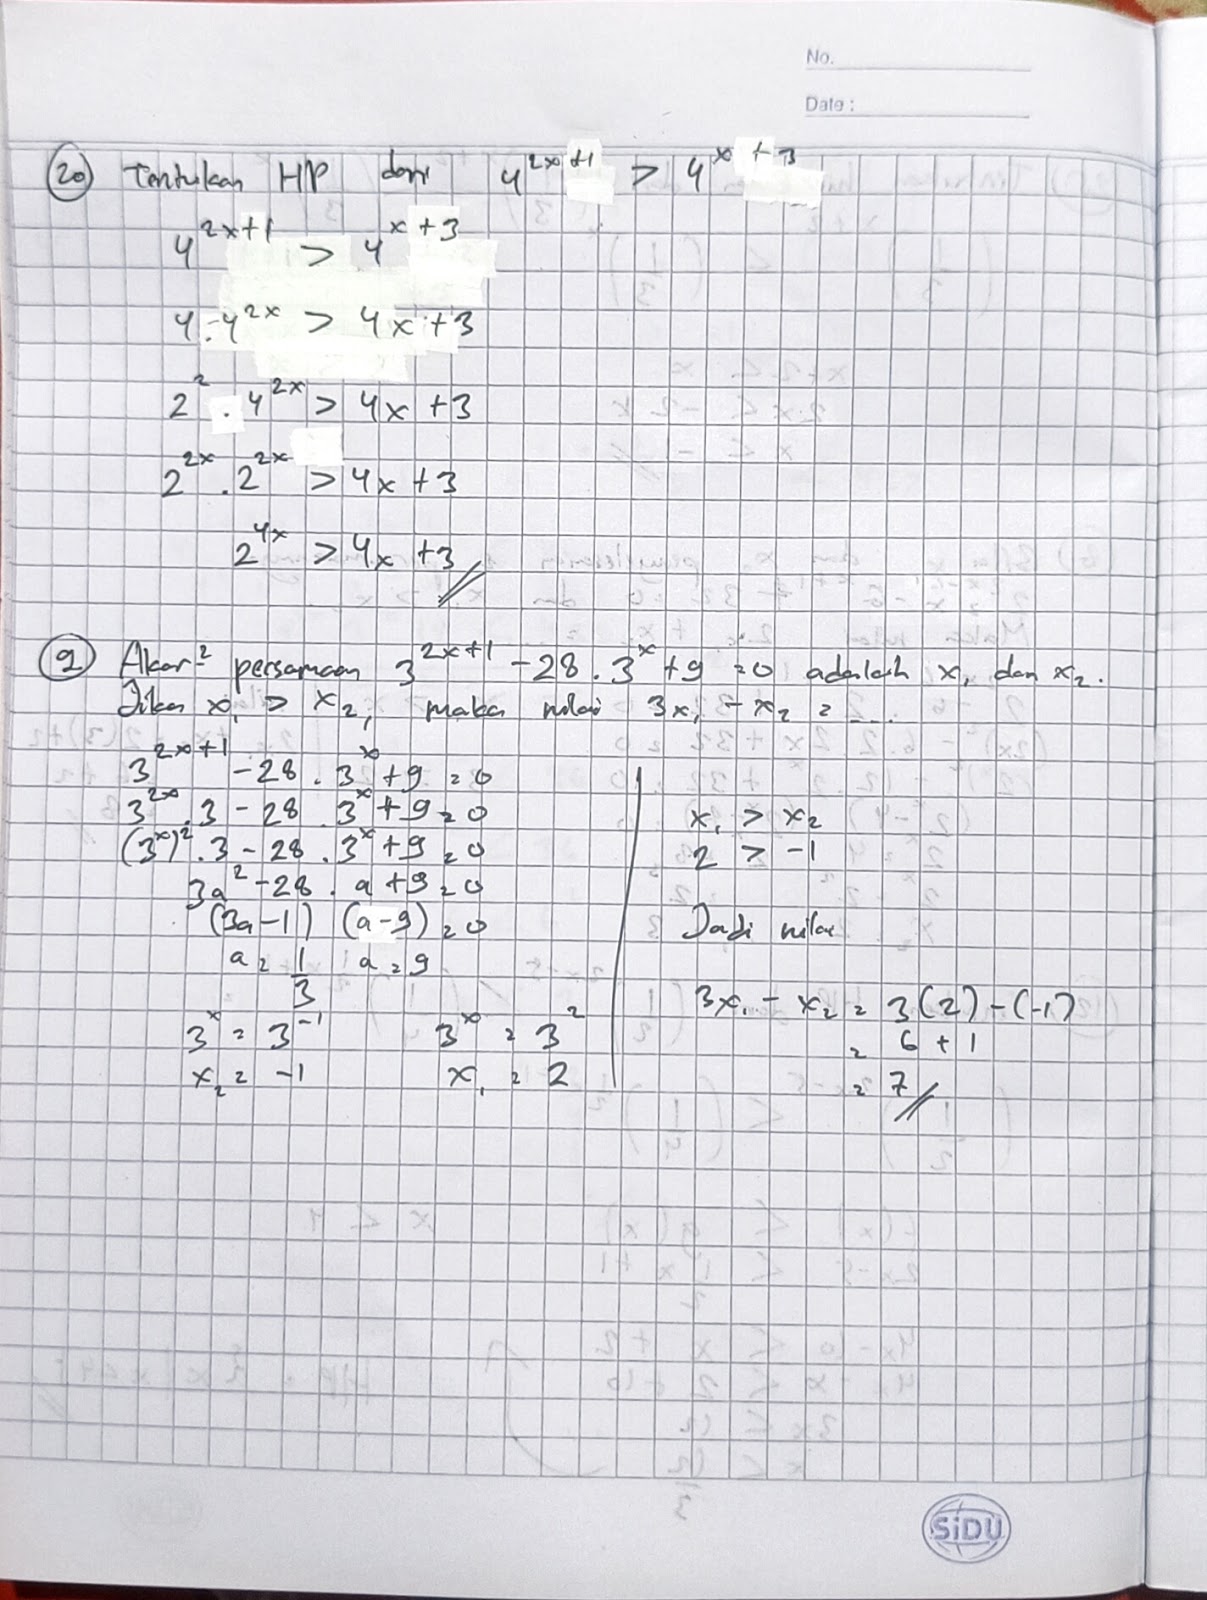 No.
Date :
20) Tentukan HP dari 4^{2x+1} > 4^{x+3}
4^{2x+1} > 4^{x+3}
4 . 4^{2x} > 4x + 3
2^2 . 4^{2x} > 4x + 3
2^{2x} . 2^{2x} > 4x + 3
2^{4x} > 4x + 3
9) Akar² persamaan 3^{2x+1} - 28 . 3^x + 9 = 0 adalah x₁ dan x₂.
Jika x₁ > x₂, maka nilai 3x₁ - x₂ = ...
3^{2x+1} - 28 . 3^x + 9 = 0
3^{2x} . 3 - 28 . 3^x + 9 = 0
(3^x)^2 . 3 - 28 . 3^x + 9 = 0
3a^2 - 28 . a + 9 = 0
(3a - 1) (a - 9) = 0
a = 1/3 a = 9
3^x = 3^{-1} 3^x = 3^2
x₂ = -1 x₁ = 2
x₁ > x₂
2 > -1
Jadi nilai
3x₁ - x₂ = 3(2) - (-1)
= 6 + 1
= 7
SiDU